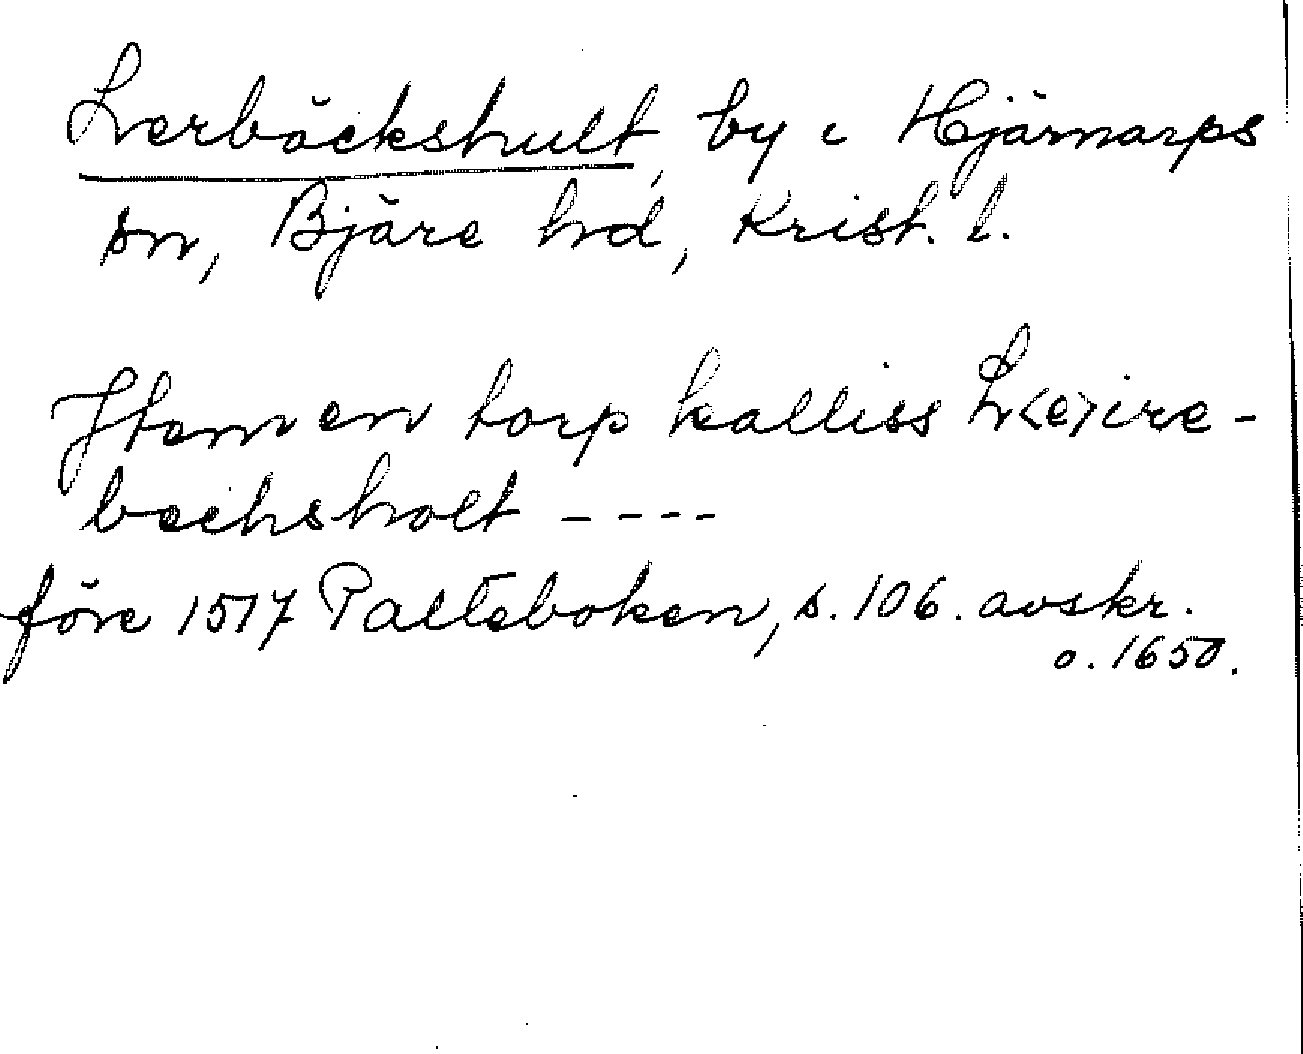 Lerbäckshult, by i Hjärnarps
sn, Bjäre hd, Krist. l.
Item en torp kalliss L<e>ire-
becksholt ----
före 1517 Palteboken, s. 106. avskr.
o. 1650.